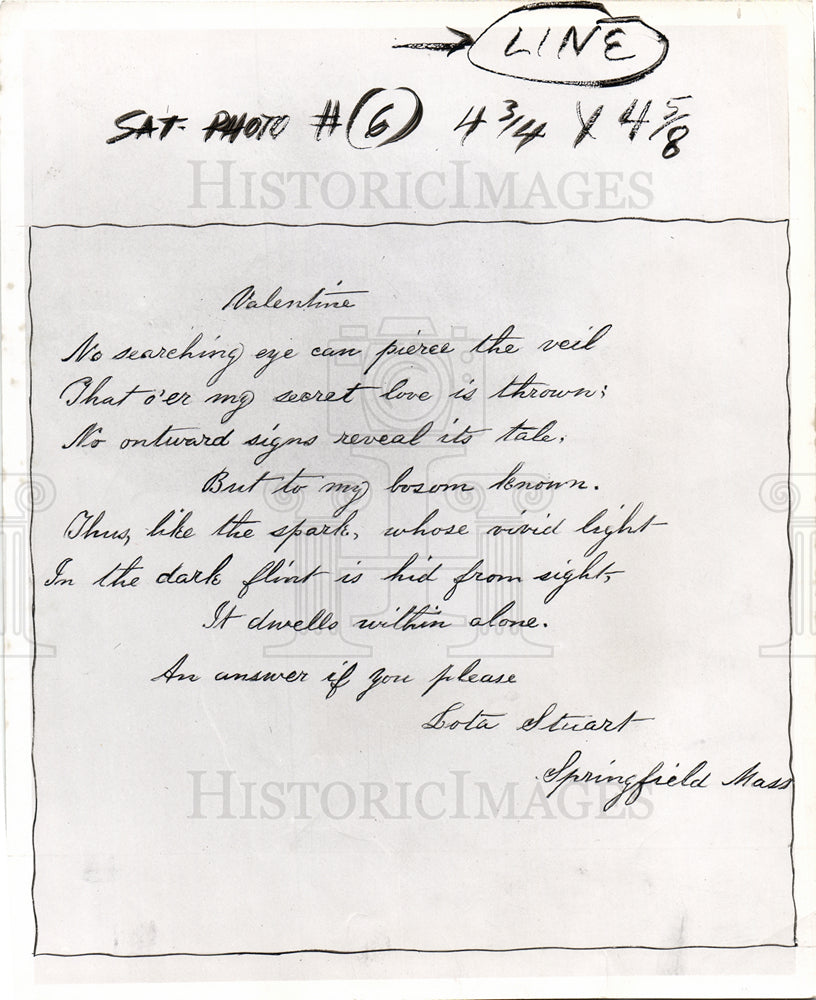 → LINE
SAT. PHOTO #6 4 3/4 X 4 5/8
HISTORICIMAGES
Valentine
No searching eye can pierce the veil
That o'er my secret love is thrown;
No outward signs reveal its tale,
But to my bosom known.
Thus, like the spark, whose vivid light
In the dark flint is hid from sight,
It dwells within alone.
An answer if you please
Lota Stuart
Springfield Mass
HISTORICIMAGES